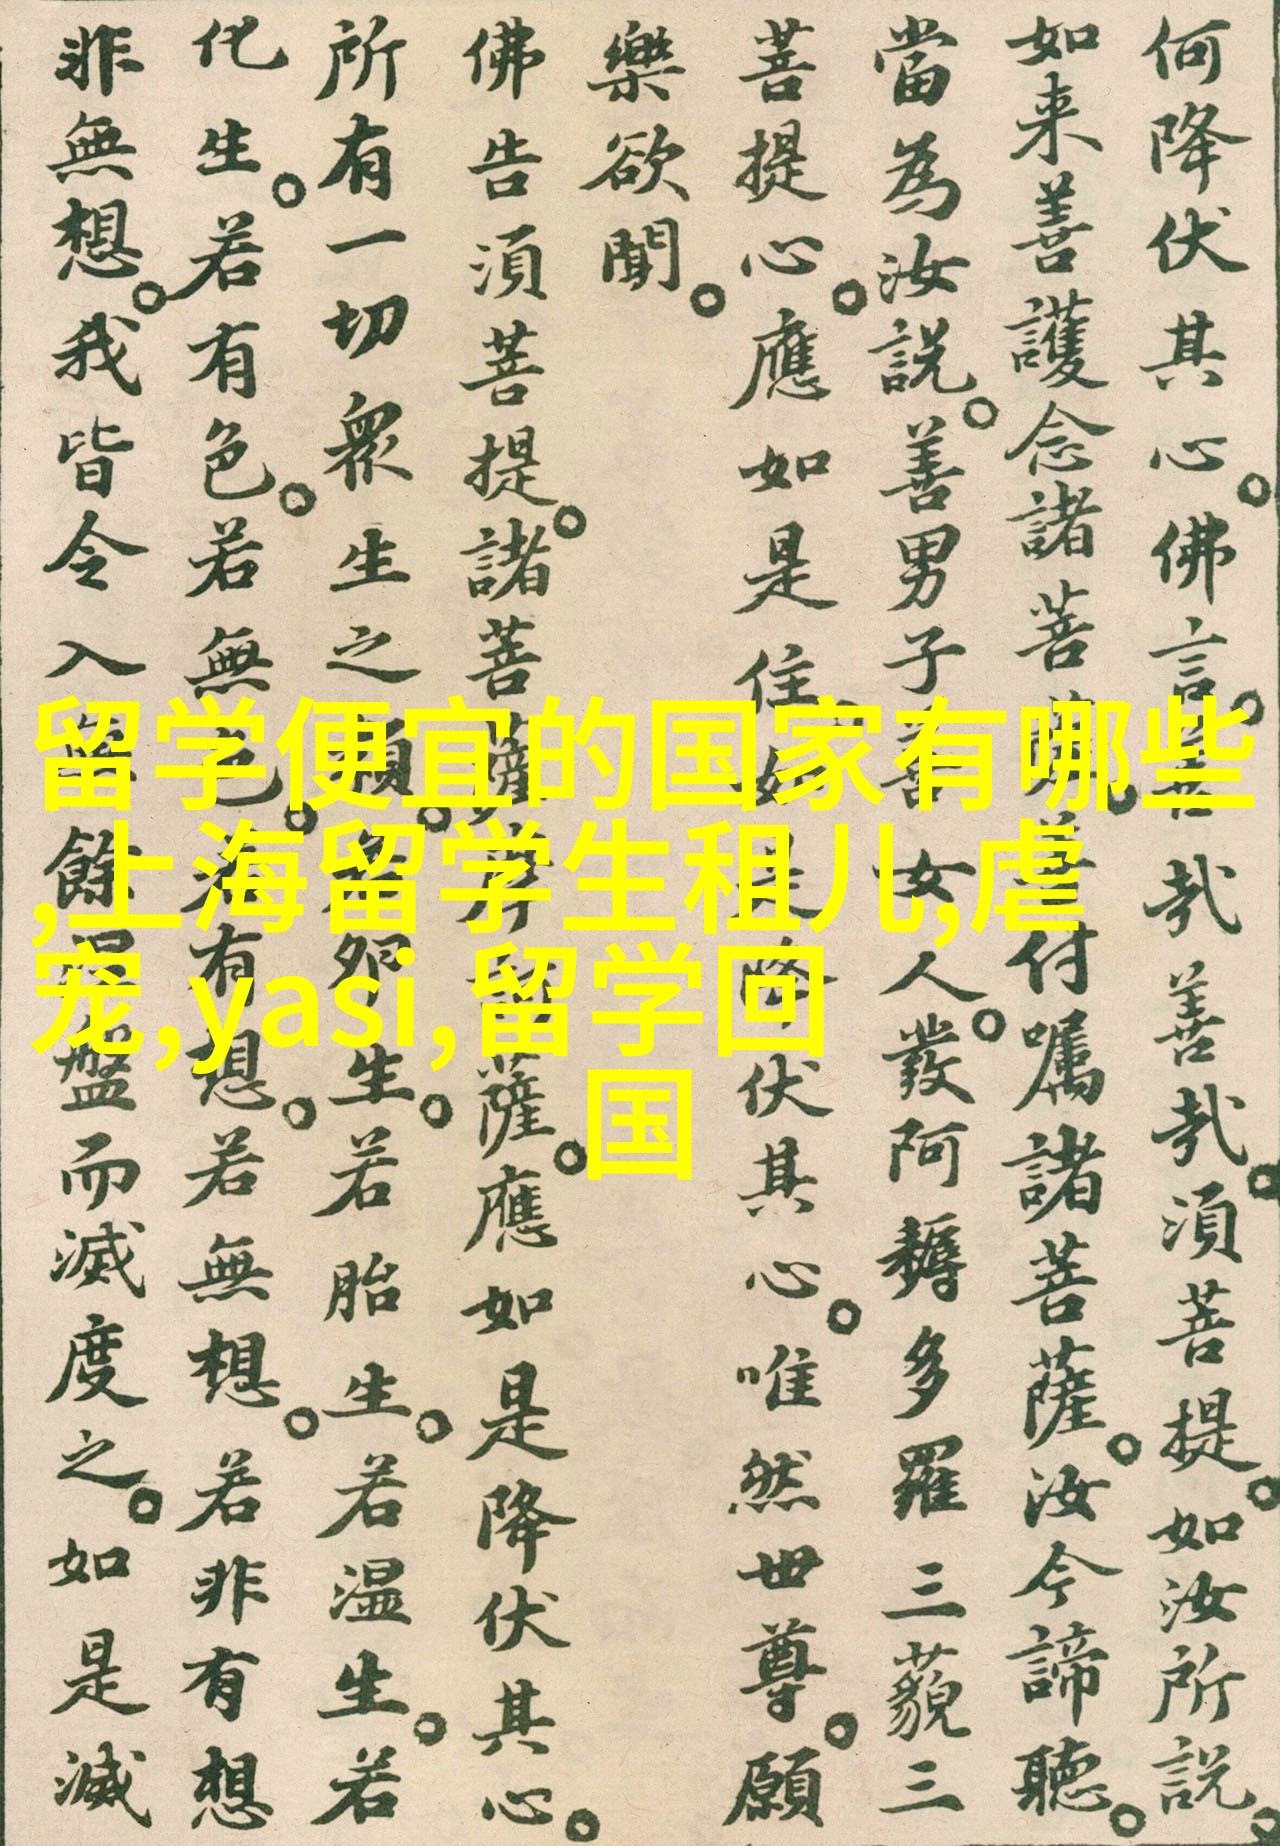 何降伏其心。佛言。善哉善哉。須菩提。如汝所説。
如来善護念諸菩薩。善付囑諸菩薩。汝今諦聽。
當為汝説。善男子善女人。發阿耨多羅三藐三
菩提心。應如是住。如是降伏其心。唯然世尊。願
樂欲聞。
佛告須菩提。諸菩薩摩訶薩。應如是降伏其心。
所有一切衆生之類。若卵生。若胎生。若温生。若
化生。若有色。若無色。若有想。若無想。若非有想
非無想。我皆令入無餘涅盤而滅度之。如是滅
留学便宜的国家有哪些
,上海留学生租儿,虐
宠,yasi,留学回
国